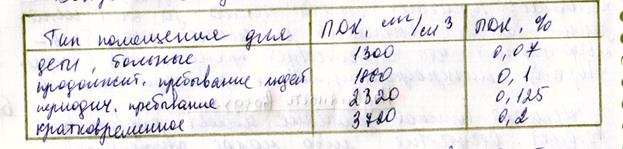 Тип помещения для ПДК, мг/м3 ПДК, %
дети, больные 1300 0,07
продолжит. пребывание людей 1800 0,1
периодич. пребывание 2320 0,125
кратковременное 3720 0,2